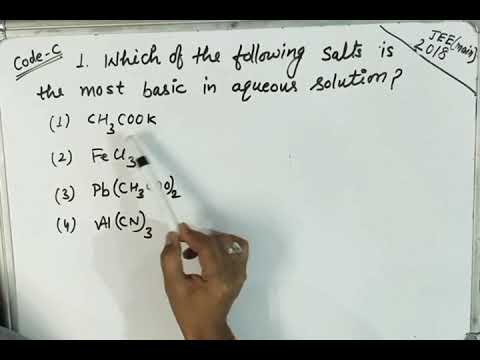 Code-C
JEE(main)
2018
1. Which of the following salts is
the most basic in aqueous solution?
(1) CH3COOK
(2) FeCl3
(3) Pb(CH3COO)2
(4) Al(CN)3